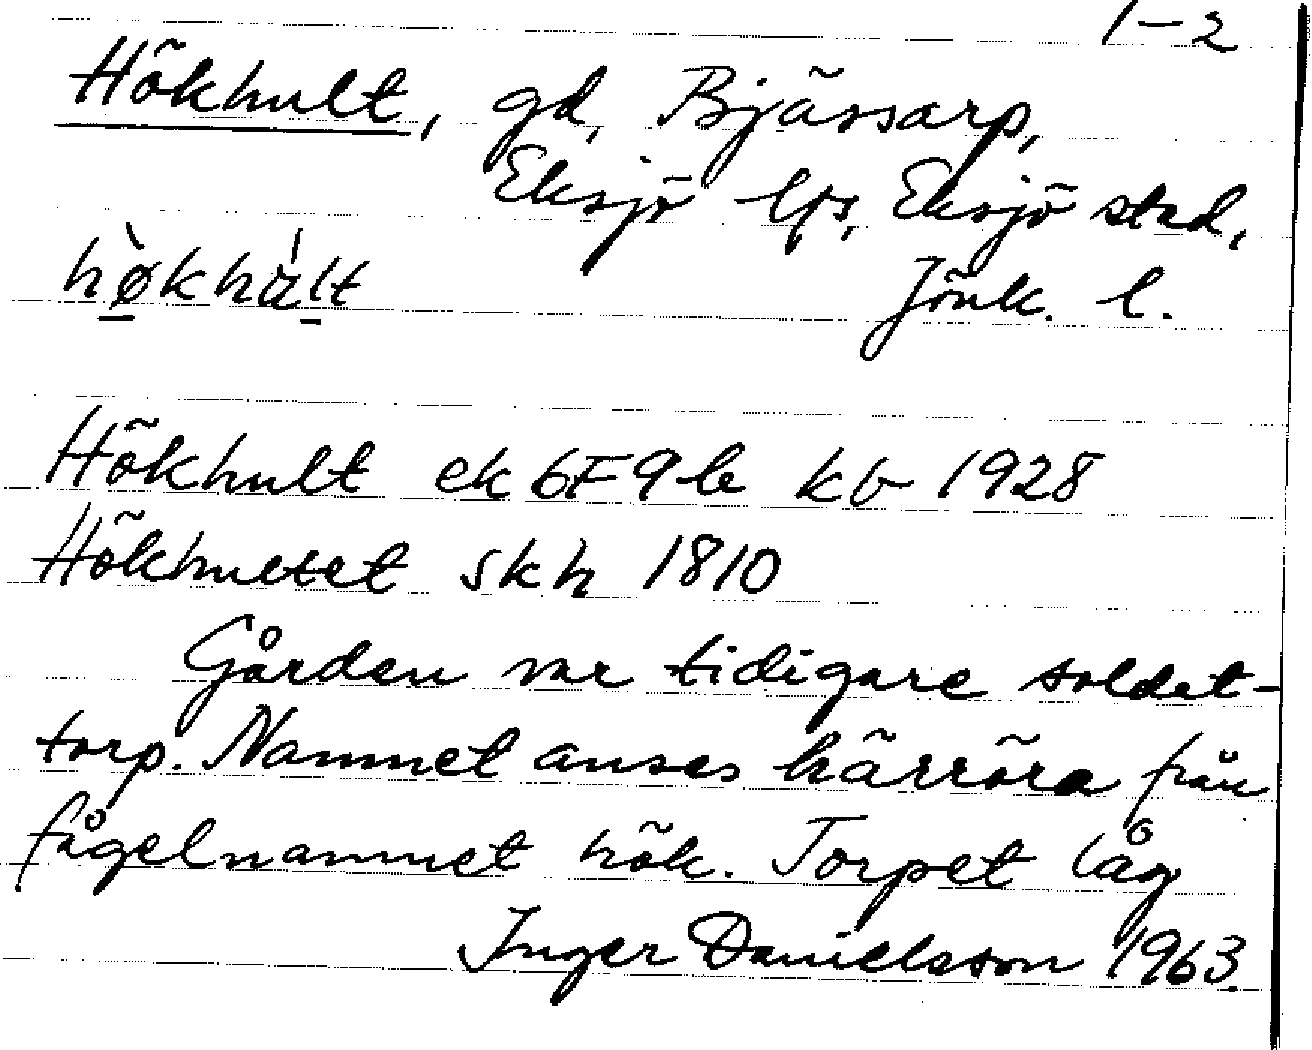 1-2
Hökhult, gd, Bjässarp,
Eksjö lfs, Eksjö stad,
hø̀khùlt Jönk. l.
Hökhult ek 6F9b kb 1928
Hökhultet skh 1810
Gården var tidigare soldat-
torp. Namnet anses härröra från
fågelnamnet hök. Torpet låg
Inger Danielsson 1963.